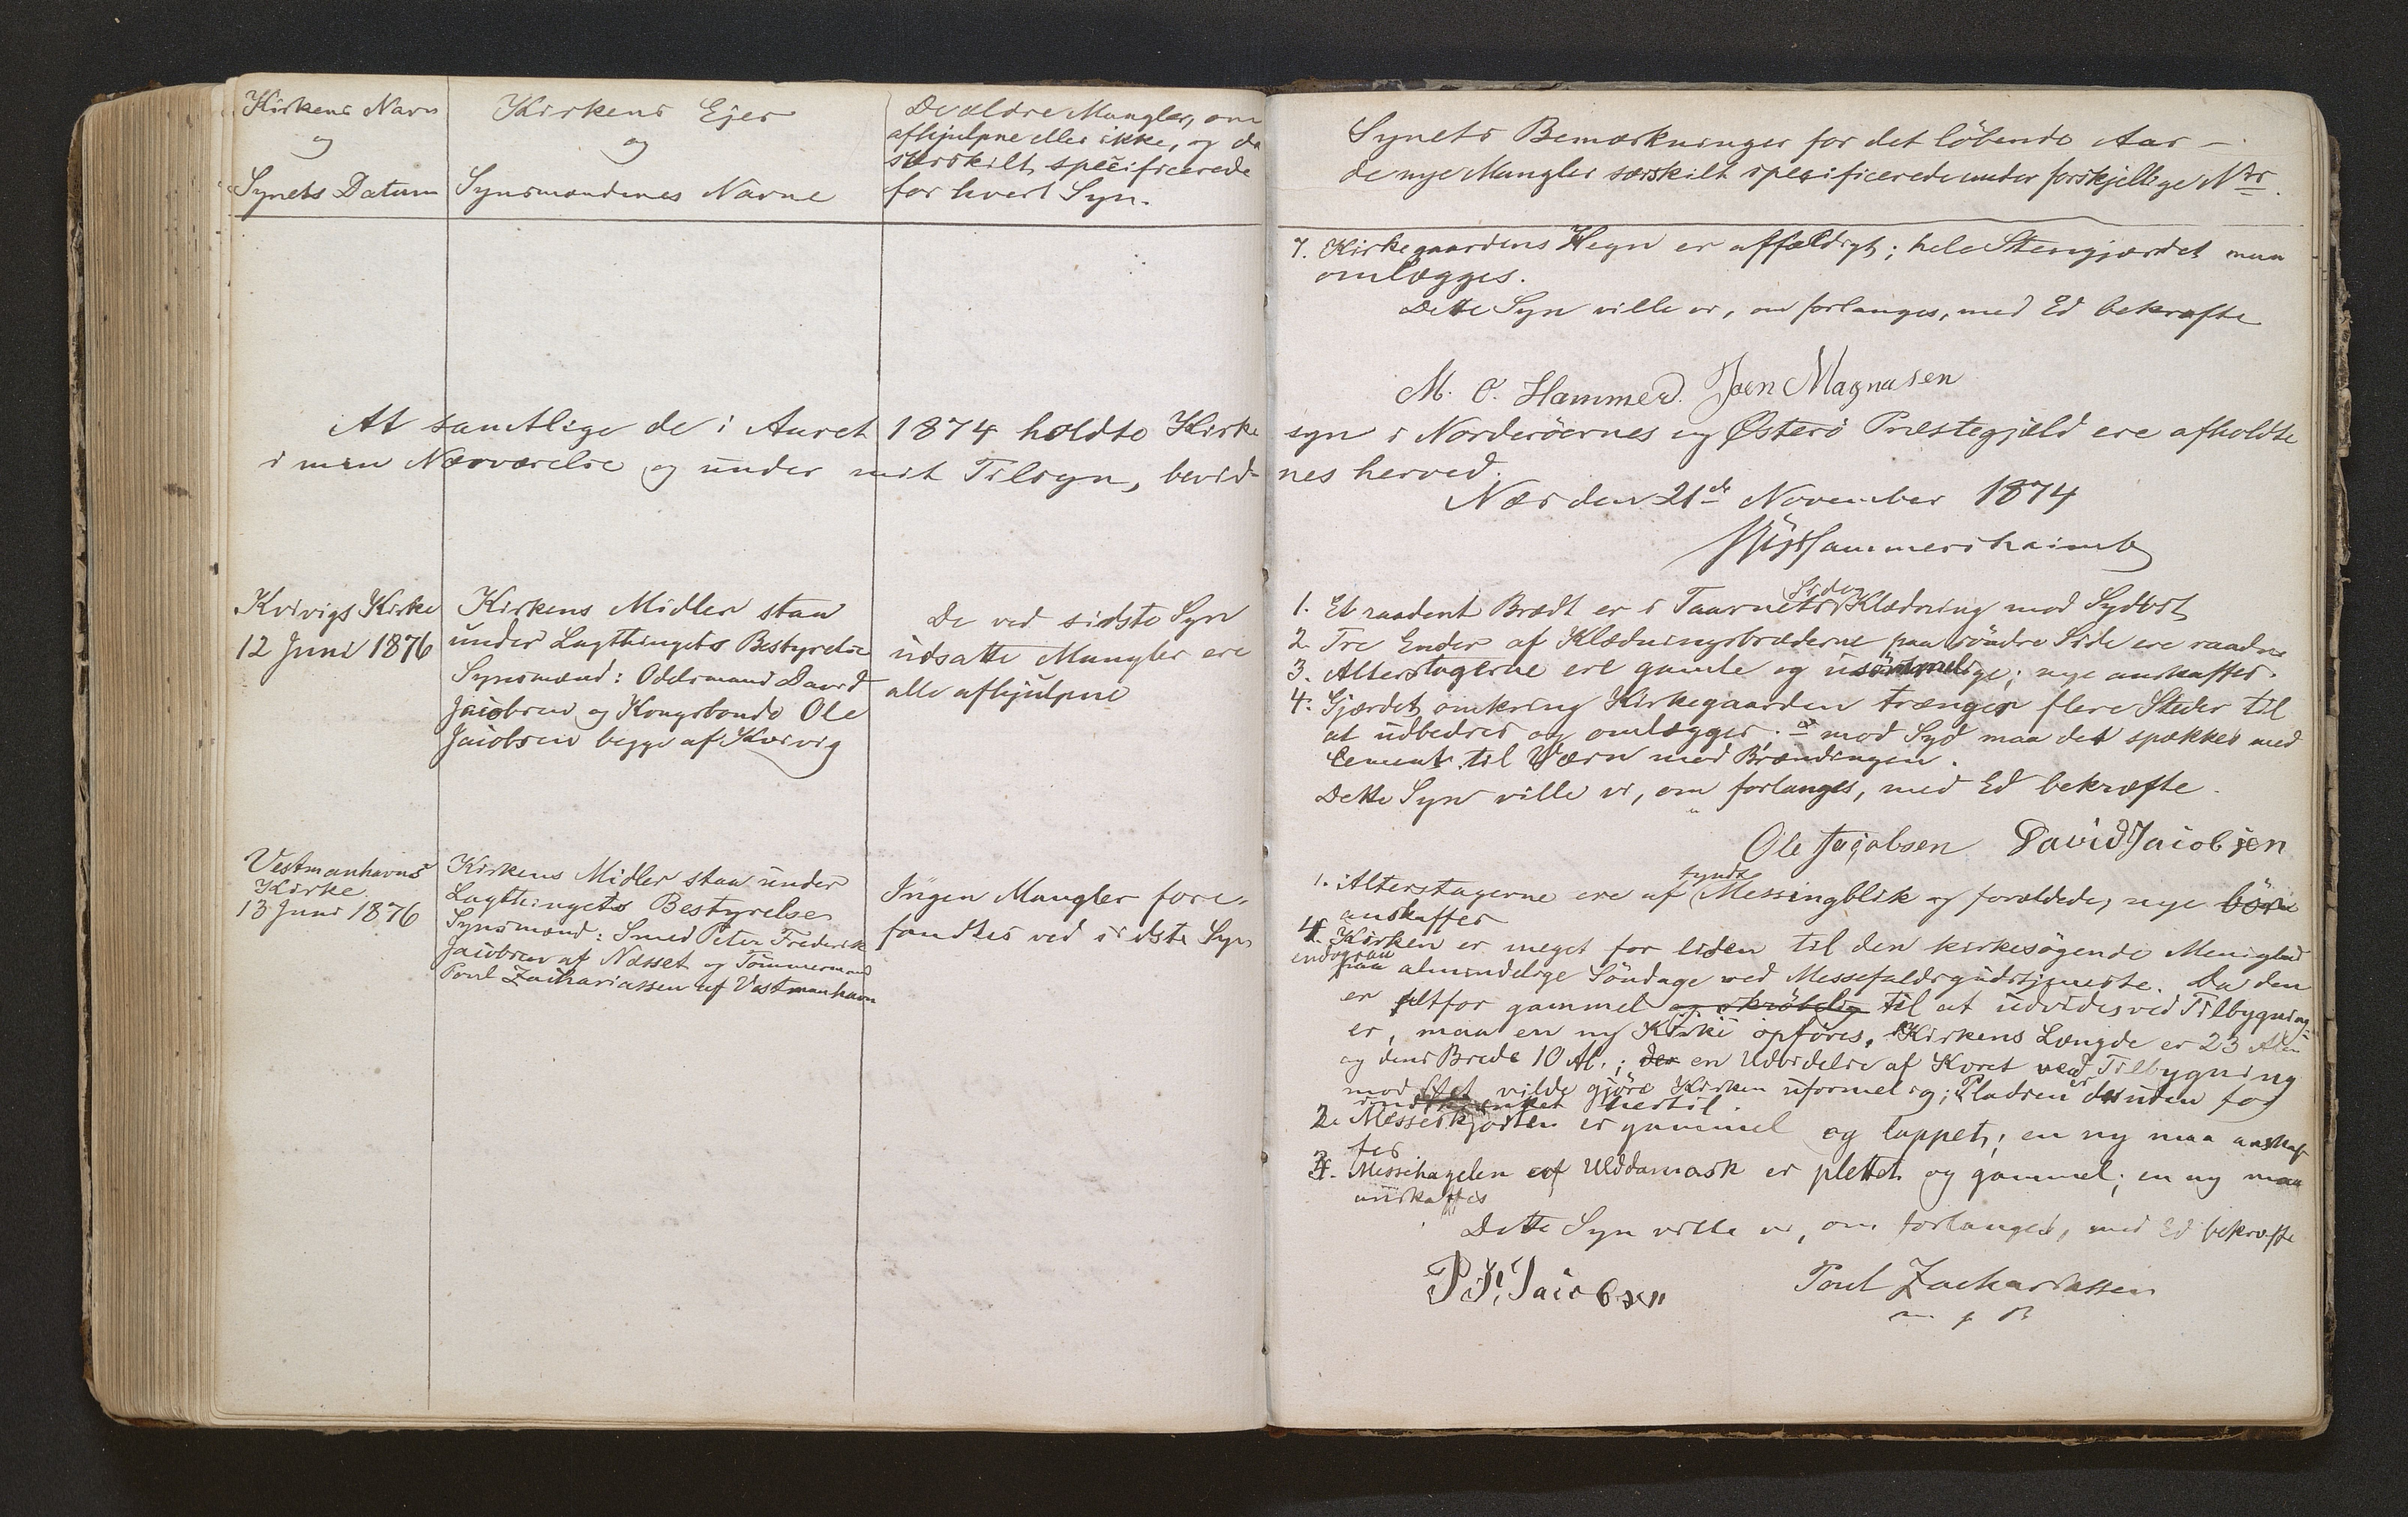 Kirkens Navn
og
Synets Datum
Kirkens Ejer
og
Synsmændenes Navne
De ældre Mangler, om
afhjulpne eller ikke, og da
særskilt specificerede
for hvert Syn.
Synets Bemærkninger for det löbende Aar –
de nye Mangler særskilt specificerede under forskjellige Nor.
7. Kirkegaardens Hegn er affældigt; hele Stengjærdet maa
omlægges.
Dette Syn ville vi, om forlanges, med Ed bekræfte
M. O. Hammer. Joen Magnusen
At samtlige de i Aaret 1874 holdte Kirke
syn i Norderöernes og Österö Præstegjæld ere afholdte
i min Nærværelse og under mit Tilsyn, bevid-
nes herved.
Næs den 21de November 1874
Hammershaimb
Kvivigs Kirke
12 Juni 1876
Kirkens Midler staa
under Lagthingets Bestyrelse
Synsmænd: Odelsmand David
Jacobsen og Kongsbonde Ole
Jacobsen begge af Kvivig
De ved sidste Syn
udsatte Mangler ere
alle afhjulpne
1. Et raadent Brædt er i Taarnets Sider Klædning mod Sydost
2. Tre Ender af Klædningsbræderne paa söndre Side ere raadne
3. Alterstagerne ere gamle og usömmelige; nye anskaffes.
4. Gjærdet omkring Kirkegaarden trænger flere Steder til
at udbedres og omlægges. mod Syd maa det spækkes med
Cement til Værn mod Brændingen.
Dette Syn ville vi, om forlanges, med Ed bekræfte.
Ole Jacobsen David Jacobsen
Vestmanhavns
Kirke
13 Juni 1876
Kirkens Midler staa under
Lagthingets Bestyrelse
Synsmænd: Smed Peter Frederik
Jacobsen af Næsset og Tömmermand
Poul Zachariassen af Vestmanhavn
Ingen Mangler fore-
fandtes ved sidste Syn
1. Alterstagerne ere af tyndt Messingblik og forældede, nye bör
anskaffes
4. Kirken er meget for liden til den kirkesögende Menighed
endogsaa paa almindelige Söndage ved Messefaldsgudstjeneste. Da den
er altfor gammel og skröbelig til at udvides ved Tilbygning-
er, maa en ny Kirke opföres. Kirkens Længde er 23 Alen
og dens Brede 10 Al.; den en Udvidelse af Koret ved Tilbygning
mod Öst vilde gjöre Kirken uformelig; Pladsen er desuden for
indskrænket hertil.
2. Messeskjorten er gammel og lappet; en ny maa anskaf-
fes
3. Messehagelen af Ulddamask er plettet og gammel; en ny maa
anskaffes
Dette Syn ville vi, om forlanges, med Ed bekræfte
P. F. Jacobsen
Poul Zachariassen
m f P